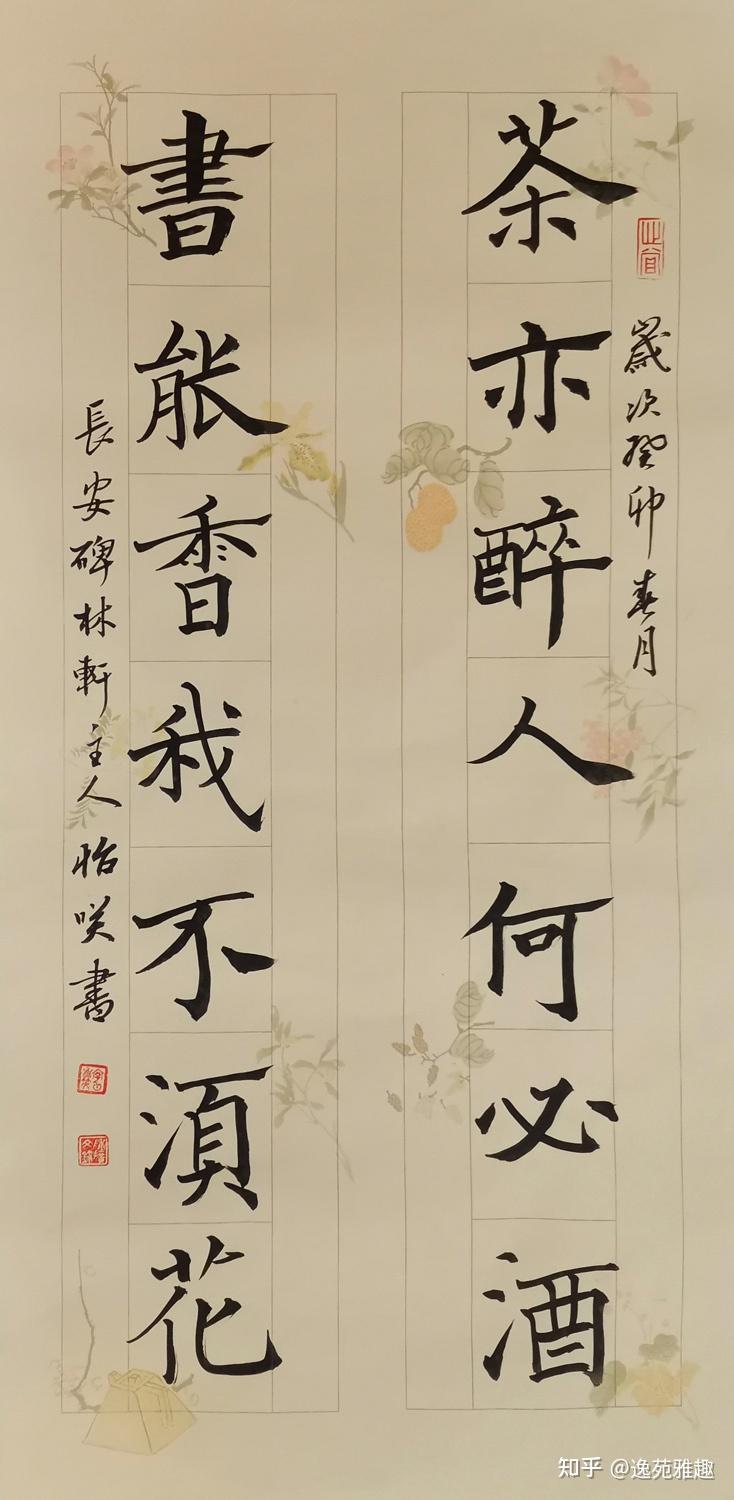 歲次癸卯春月
茶亦醉人何必酒
書能香我不須花
長安碑林軒主人怡咲書
知乎 @逸苑雅趣